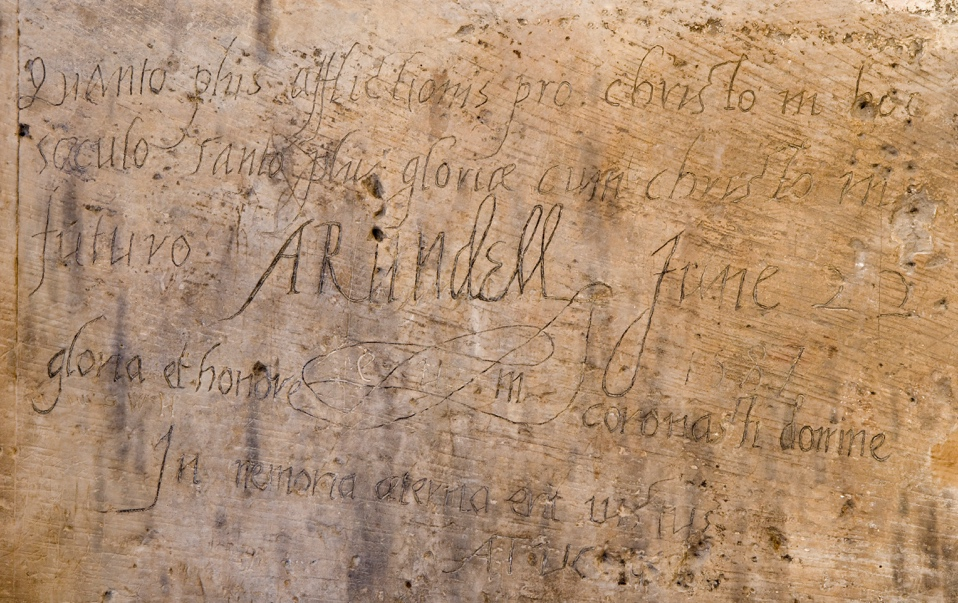 Quanto plus afflictionis pro christo in hoc
sæculo Tanto plus gloriæ cum christo in
futuro ARundell June 22
1587
gloria et honore in corona sti domine
In memoria æterna erit iustus